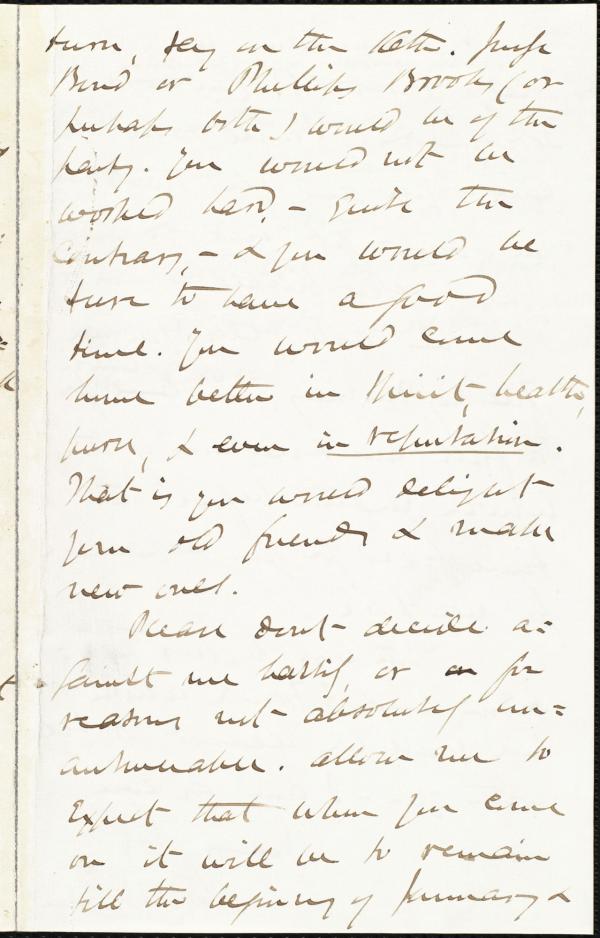 turn, say on the 10th. Judge
Bond or Phillips Brooks (or
perhaps both) would be of the
party. You would not be
worked hard, – quite the
contrary, – & you would be
sure to have a good
time. You would come
home better in spirit, health,
purse, & even in reputation.
That is you would delight
your old friends & make
new ones.
Please don't decide a=
gainst me hastily, or for
reasons not absolutely un=
answerable. Allow me to
expect that when you come
on it will be to remain
till the beginning of January &